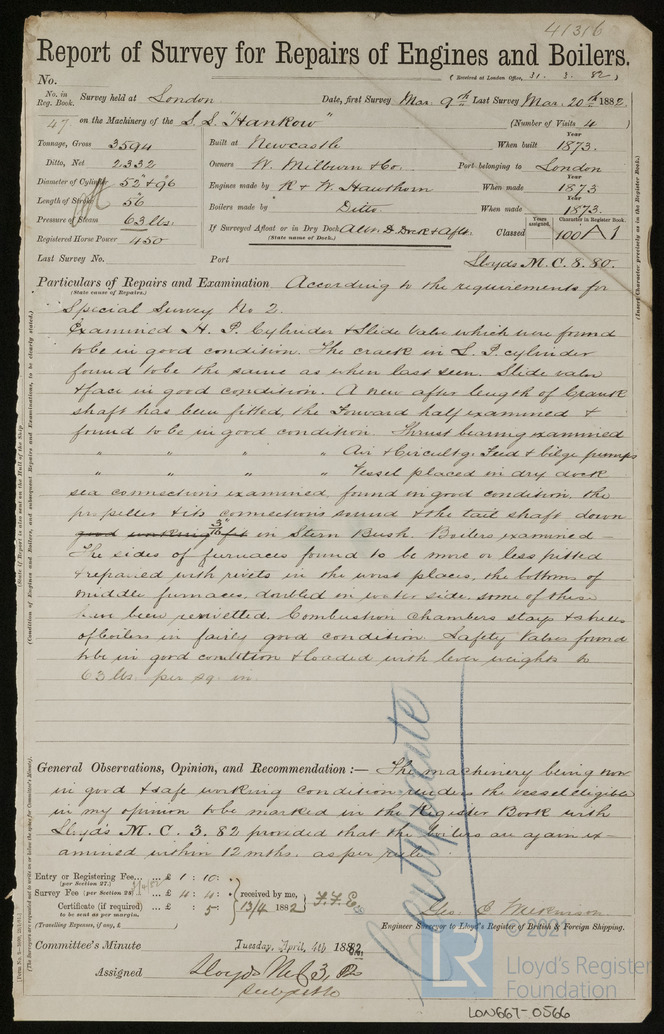 41316
Report of Survey for Repairs of Engines and Boilers.
(Received at London Office, 31. 3. 82)
No.
No. in Reg. Book. Survey held at London Date, first Survey Mar. 9th Last Survey Mar. 20th 1882.
47 on the Machinery of the S.S. "Hankow" (Number of Visits 4)
Tonnage, Gross 3594
Ditto, Net 2332
Diameter of Cylinder 52" & 96
Length of Stroke 56
Pressure of Steam 63 lbs.
Registered Horse Power 450
Built at Newcastle When built Year 1873.
Owners W. Milburn & Co. Port belonging to London
Engines made by R & W. Hawthorn When made Year 1873
Boilers made by Ditto. When made Year 1873.
If Surveyed Afloat or in Dry Dock & Aflt.
(State name of Dock.)
Classed Years assigned. 100 Character in Register Book. A1
Last Survey No. Port Lloyds M.C. 8.80.
Particulars of Repairs and Examination According to the requirements for
(State cause of Repairs.)
Special Survey No 2.
Examined H. P. Cylinder & Slide Valve which were found
to be in good condition. The crack in L. P. cylinder
found to be the same as when last seen. Slide valve
& face in good condition. A new after length of Crank
shaft has been fitted, the Forward half examined &
found to be in good condition Thrust bearing examined
" " " " Air & Circultg. Feed & bilge pumps
" " " " Vessel placed in dry dock
sea connections examined, found in good condition, the
propeller & its connections sound & the tail shaft down
good working 3/16" in Stern Bush. Boilers examined –
The sides of furnaces found to be more or less pitted
& repaired with rivets in the worst places, the bottoms of
middle furnaces, doubled on water side, some of these
have been rerivetted. Combustion chambers stays & shells
of boilers in fairly good condition. Safety Valves found
to be in good condition & loaded with lever weights to
63 lbs. per sq. in.
General Observations, Opinion, and Recommendation :— The machinery being now
in good & safe working condition renders the vessel eligible
in my opinion to be marked in the Register Book with
Lloyds M. C. 3. 82 provided that the boilers are again ex-
amined within 12 mths. as per rule.
Certificate
Entry or Registering Fee... ... £ 1 : 10 :
(per Section 27.)
Survey Fee (per Section 28) ... £ 4 : 4 :
Certificate (if required) ... : 5 :
to be sent as per margin.
(Travelling Expenses, if any, £ )
received by me, 13/4 1882
Geo. Wilkinson
Engineer Surveyor to Lloyd's Register of British & Foreign Shipping.
Committee's Minute Tuesday, April, 4th 1882
Assigned Lloyds MC 3, 82
(Insert Character precisely as in the Register Book.)
© 2021
LR Lloyd's Register
Foundation
LON667-0566